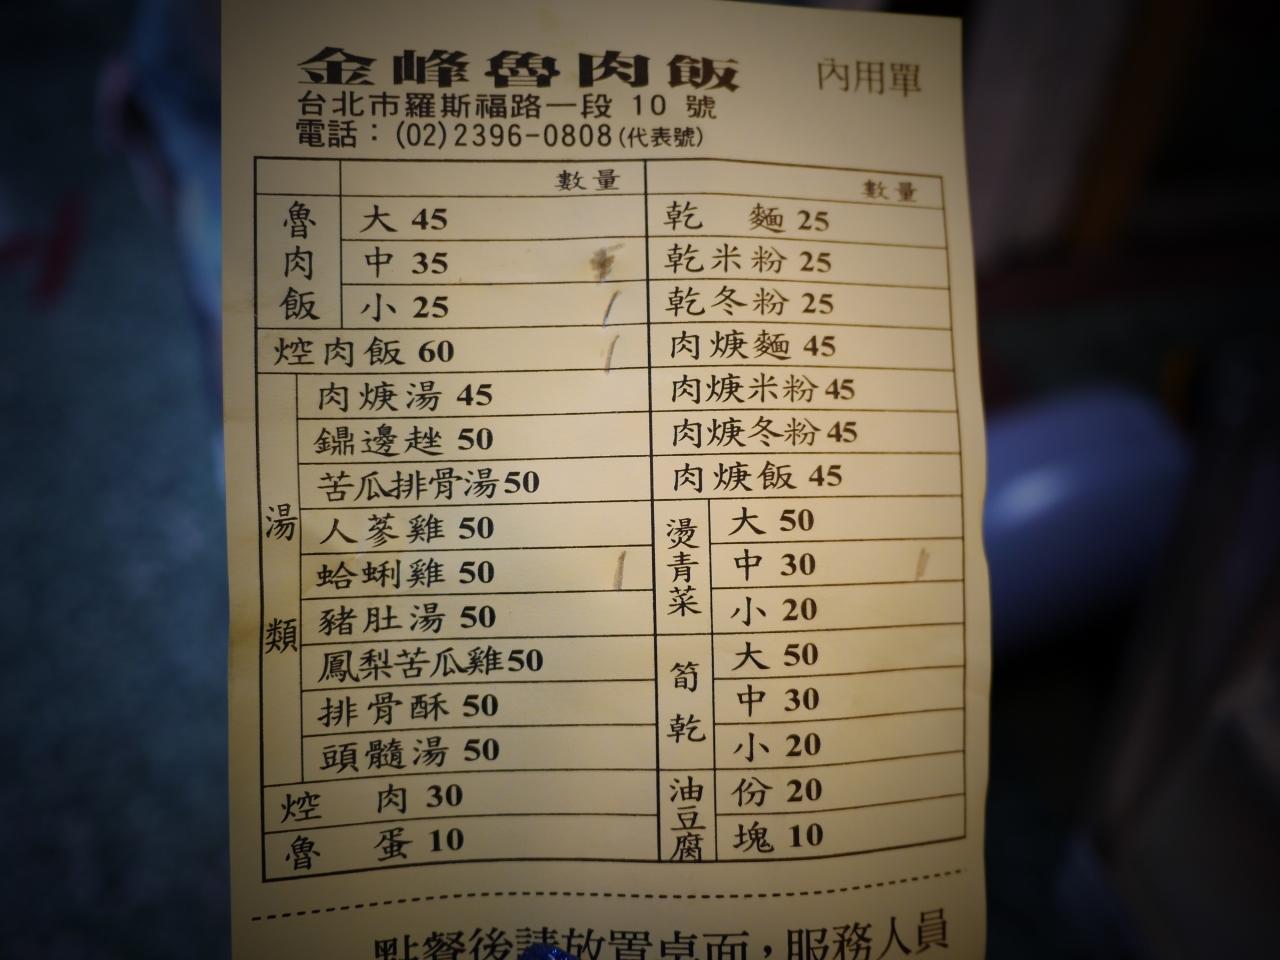 金峰魯肉飯 內用單
台北市羅斯福路一段 10 號
電話：(02)2396-0808(代表號)
數量
魯肉飯
大 45
中 35
小 25
焢肉飯 60
湯類
肉焿湯 45
鐤邊趖 50
苦瓜排骨湯 50
人蔘雞 50
蛤蜊雞 50
豬肚湯 50
鳳梨苦瓜雞 50
排骨酥 50
頭髓湯 50
焢肉 30
魯蛋 10
數量
乾麵 25
乾米粉 25
乾冬粉 25
肉焿麵 45
肉焿米粉 45
肉焿冬粉 45
肉焿飯 45
燙青菜
大 50
中 30
小 20
筍乾
大 50
中 30
小 20
油豆腐
份 20
塊 10
點餐後請放置桌面，服務人員